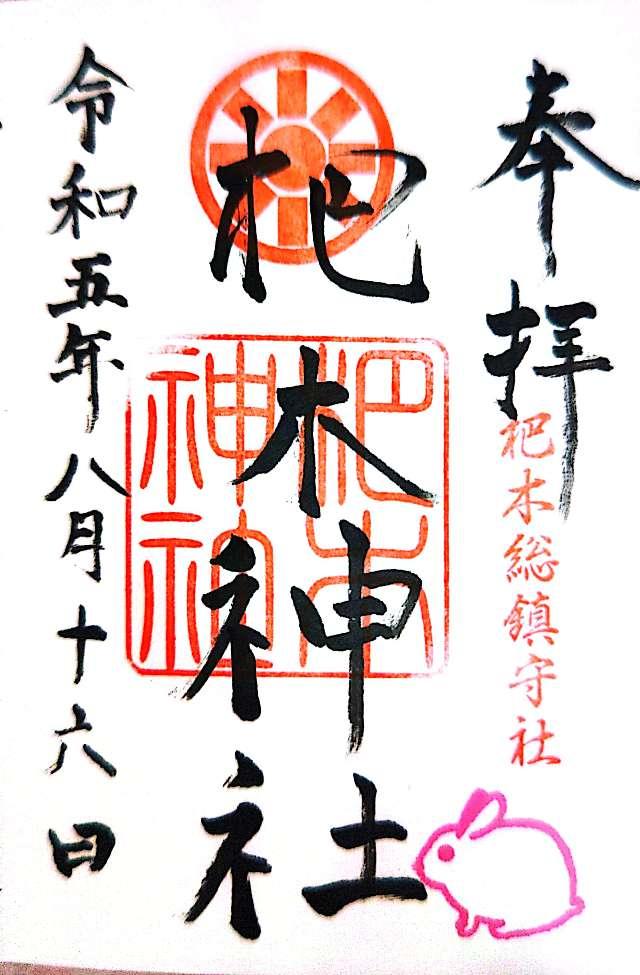 奉拝
杷木総鎮守社
杷木神社
杷木神社
令和五年八月十六日